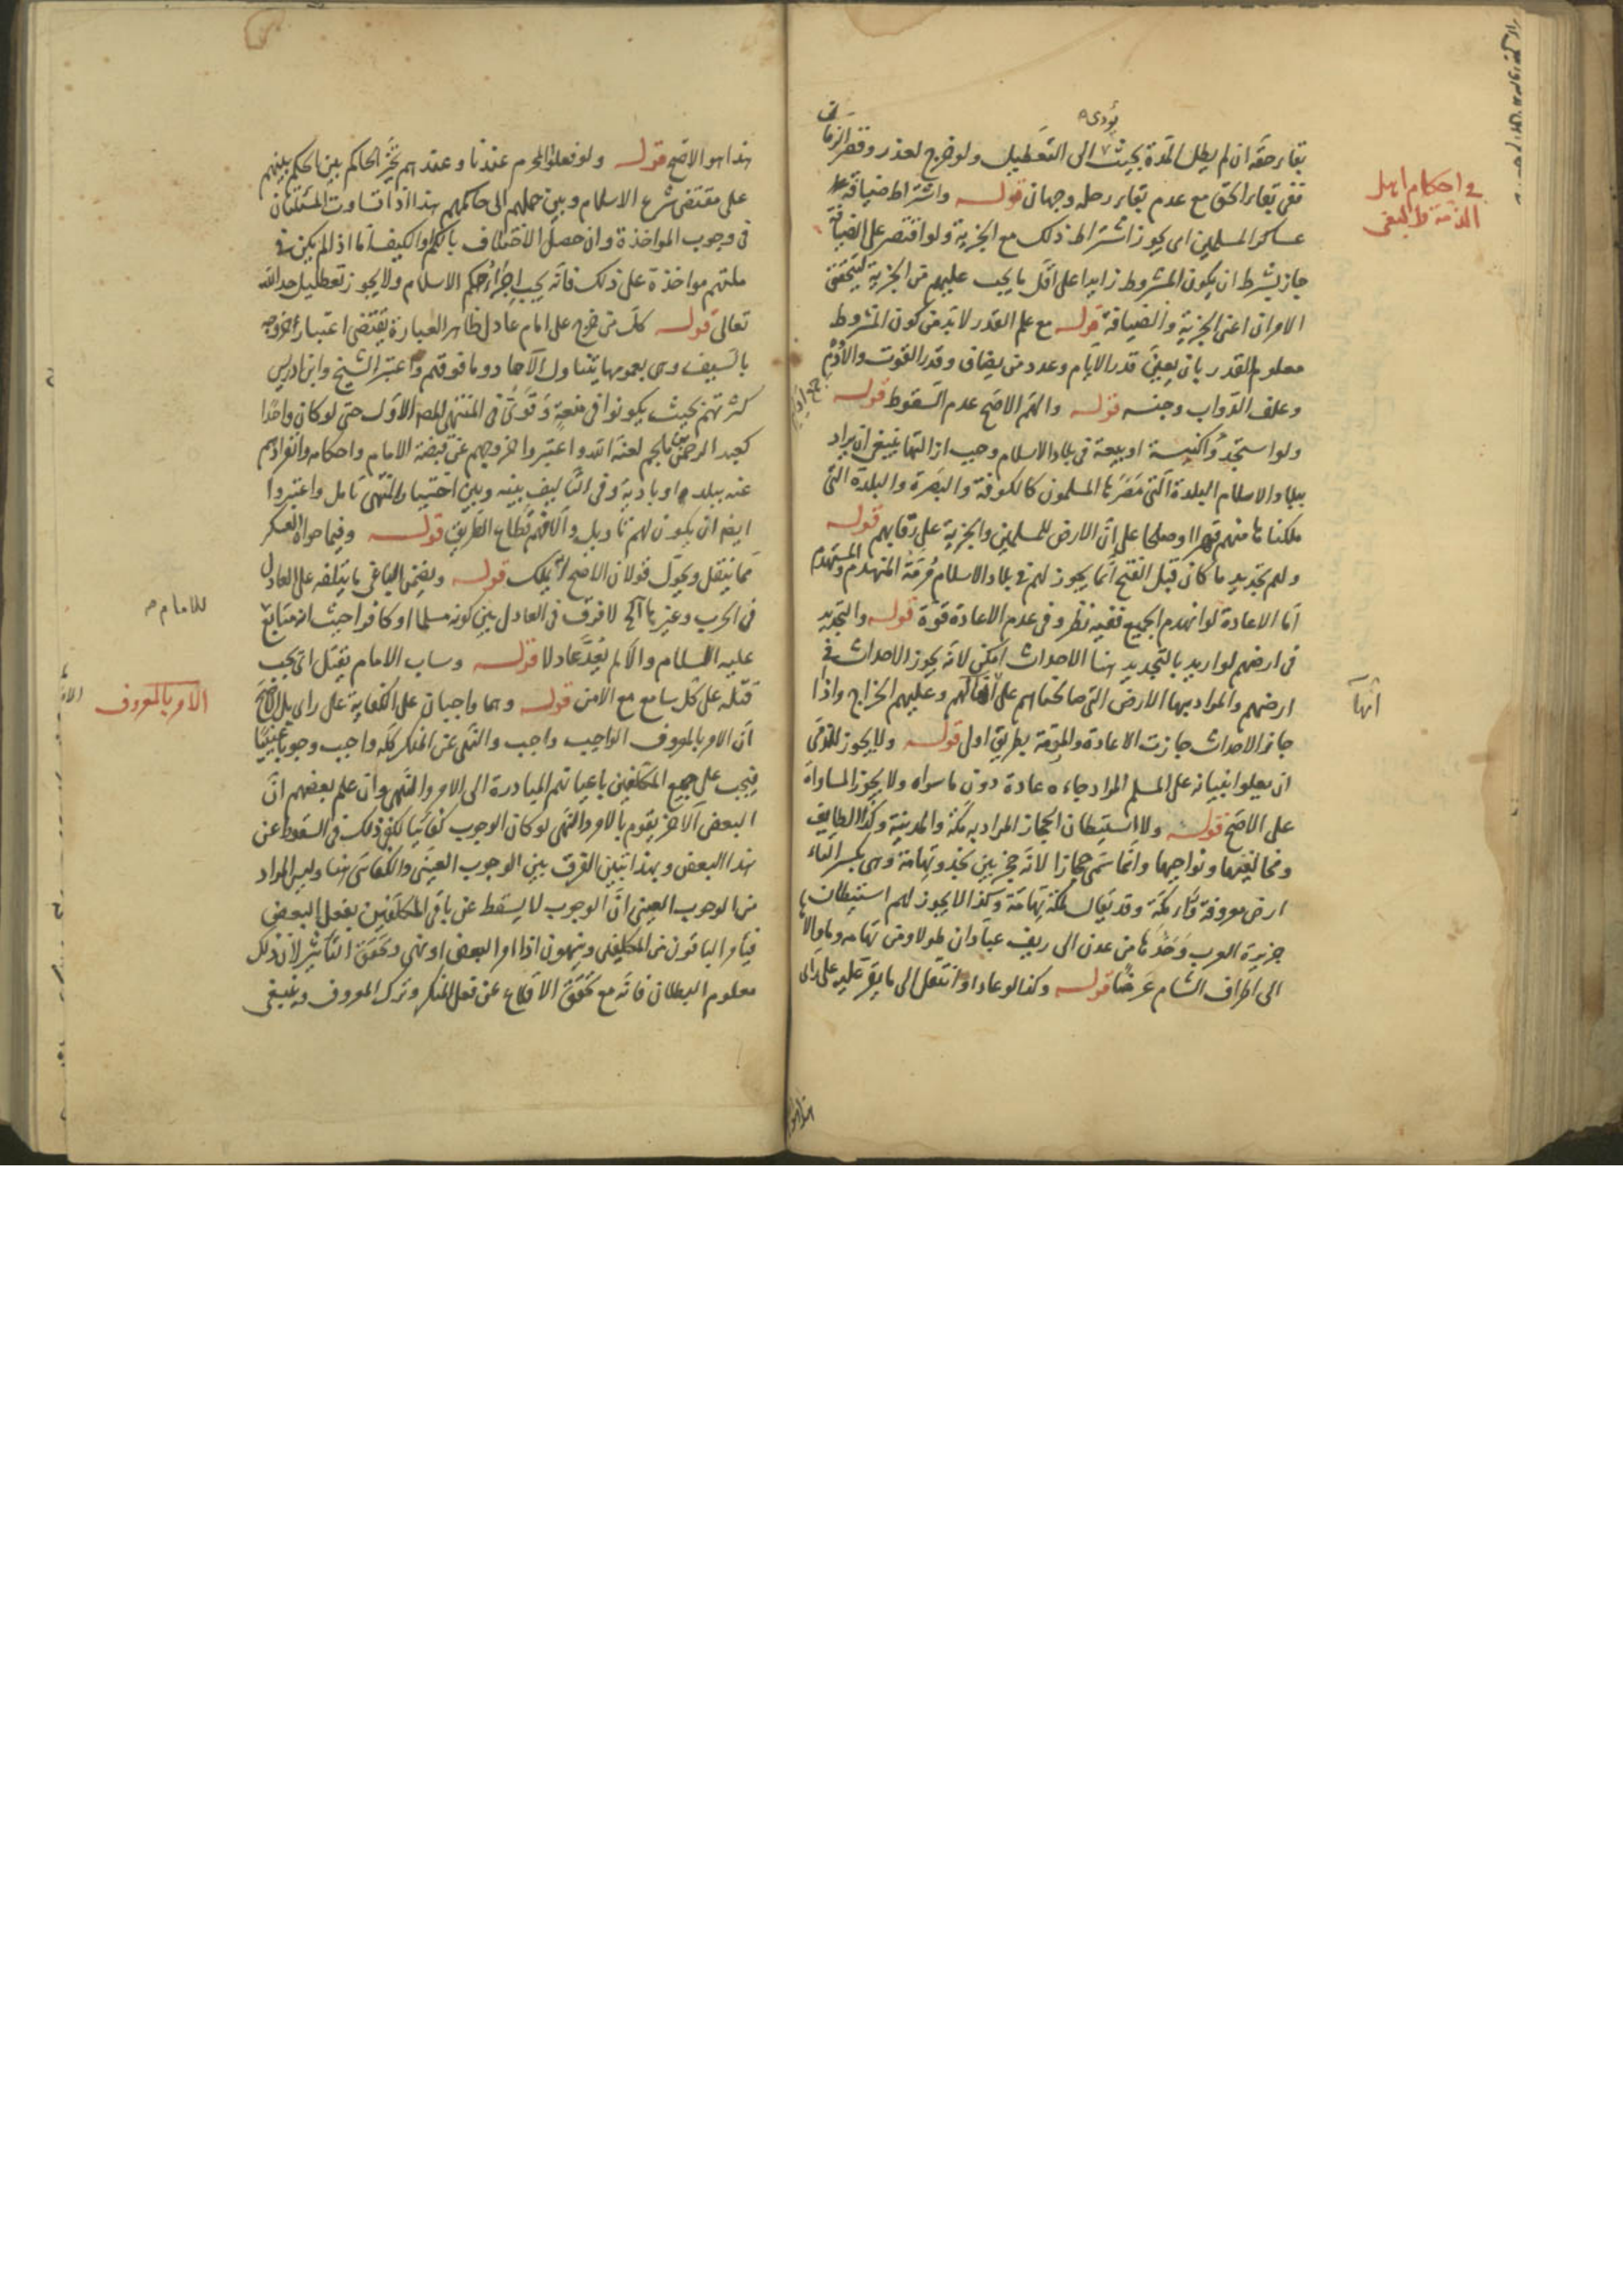 في احكام اهل
الذمة والبغي
يؤدى
بقاء حقه ان لم يطل المدة بحيث الى التعطيل ولو خرج لعذر وقصر الزمان
ففي بقاء الحق مع عدم بقاء رحله وجهان قوله واشتراط ضيافة
عساكر المسلمين اي يجوز اشتراط ذلك مع الجزية ولو اقتصر على الضيافة
جاز بشرط ان يكون المشروط زايدا على اقل ما يجب عليهم من الجزية ليتحقق
الامران اعني الجزية والضيافة قوله مع علم القدر لا بد من كون المشروط
معلوم القدر بان يعين قدر الايام وعدد من يضاف وقدر القوت والادم
وعلف الدواب وجنسه قوله والهم الاصح عدم السقوط قوله
ولو استجدوا كنيسة او بيعة في بلاد الاسلام وجب ازالتها ينبغي ان يراد
ببلاد الاسلام البلدة التي مصرها المسلمون كالكوفة والبصرة والبلدة التي
ملكناها منهم قهرا او صلحا على ان الارض للمسلمين والجزية على رقابهم قوله
ولهم تجديد ما كان قبل الفتح انما يجوز لهم في بلاد الاسلام مرمة المنهدم والمستهدم
اما الاعادة لو انهدم الجميع ففيه نظر وفي عدم الاعادة قوة قوله والتجديد
في ارضهم لو اريد بالتجديد هنا الاحداث امكن لانه يجوز الاحداث في
ارضهم والمراد بها الارض التي صالحناهم على انها لهم وعليهم الخراج واذا
انها
جاز الاحداث جازت الاعادة والمرمة بطريق اولى قوله ولا يجوز للذمي
ان يعلو ابنيانه على المسلم المراد جاره عادة دون ما سواه ولا يجوز المساواة
على الاصح قوله ولا استيطان الحجاز المراد به مكة والمدينة وكذا الطايف
ومخاليفها ونواحيها وانما سمي حجازا لانه حجز بين نجد وتهامة وهي بكسر التاء
ارض معروفة وراء مكة وقد يقال لمكة تهامة وكذا لا يجوز لهم استيطان
جزيرة العرب وحدها من عدن الى ريف عبادان طولا ومن تهامه وما والاها
الى اطراف الشام عرضا قوله وكذا لو عاد او انتقل الى ما يقر عليه على راى
هذا هو الاصح قوله ولو فعلوا المحرم عندنا وعندهم تخير الحاكم بين الحكم بينهم
على مقتضى شرع الاسلام وبين حملهم الى حاكمهم هذا اذا تساوت الملتان
في وجوب المواخذة وان حصل الاختلاف بالكم والكيف اما اذا لم يكن في
ملتهم مواخذة على ذلك فانه يجب اجراء حكم الاسلام ولا يجوز تعطيل حد الله
تعالى قوله كل من خرج على امام عادل ظاهر العبارة يقتضي اعتبار الخروج
بالسيف وهى بعمومها يتناول الآحاد وما فوقهم واعتبر الشيخ وابن ادريس
كثرتهم بحيث يكونوا في منعة وقوى في المنتهى الاول حتى لو كان واحدا
كعبد الرحمن بن ملجم لعنه الله واعتبروا خروجهم عن قبضة الامام واحكامه وانفرادهم
عنه ببلد او بادية وفي التاليف بينه وبين اختيار المنتهى تامل واعتبروا
ايضا ان يكون لهم تاويل والا فهم قطاع الطريق قوله وفيما حواه العسكر
مما ينقل ويحول قولان الاصح لا يملك قوله ويضمن الباغي ما يتلفه على العادل
في الحرب وغيرها الخ لا فرق في العادل بين كونه مسلما او كافرا حيث انه متابع
للامام
عليه السلام والا لم يعد عادلا قوله وساب الامام يقتل اي يجب
قتله على كل سامع مع الامن قوله وهما واجبان على الكفاية على راى بل الاصح
الامر بالمعروف
ان الامر بالمعروف الواجب واجب والنهي عن المنكر كله واجب وجوبا عينيا
فيجب على جميع المكلفين باعيانهم المبادرة الى الامر والنهي وان علم بعضهم ان
البعض الآخر يقوم بالامر والنهي لو كان الوجوب كفائيا لكفى ذلك في السقوط عن
هذا البعض وبهذا تبين الفرق بين الوجوب العيني والكفائي هنا وليس المراد
من الوجوب العيني ان الوجوب لا يسقط عن باقي المكلفين بفعل البعض
فيأمر الباقون من المكلفين وينهون اذا امر البعض او نهى وتحقق التاثير لان ذلك
معلوم البطلان فانه مع تحقق الاقلاع عن فعل المنكر وترك المعروف وينبغي
هذا هو